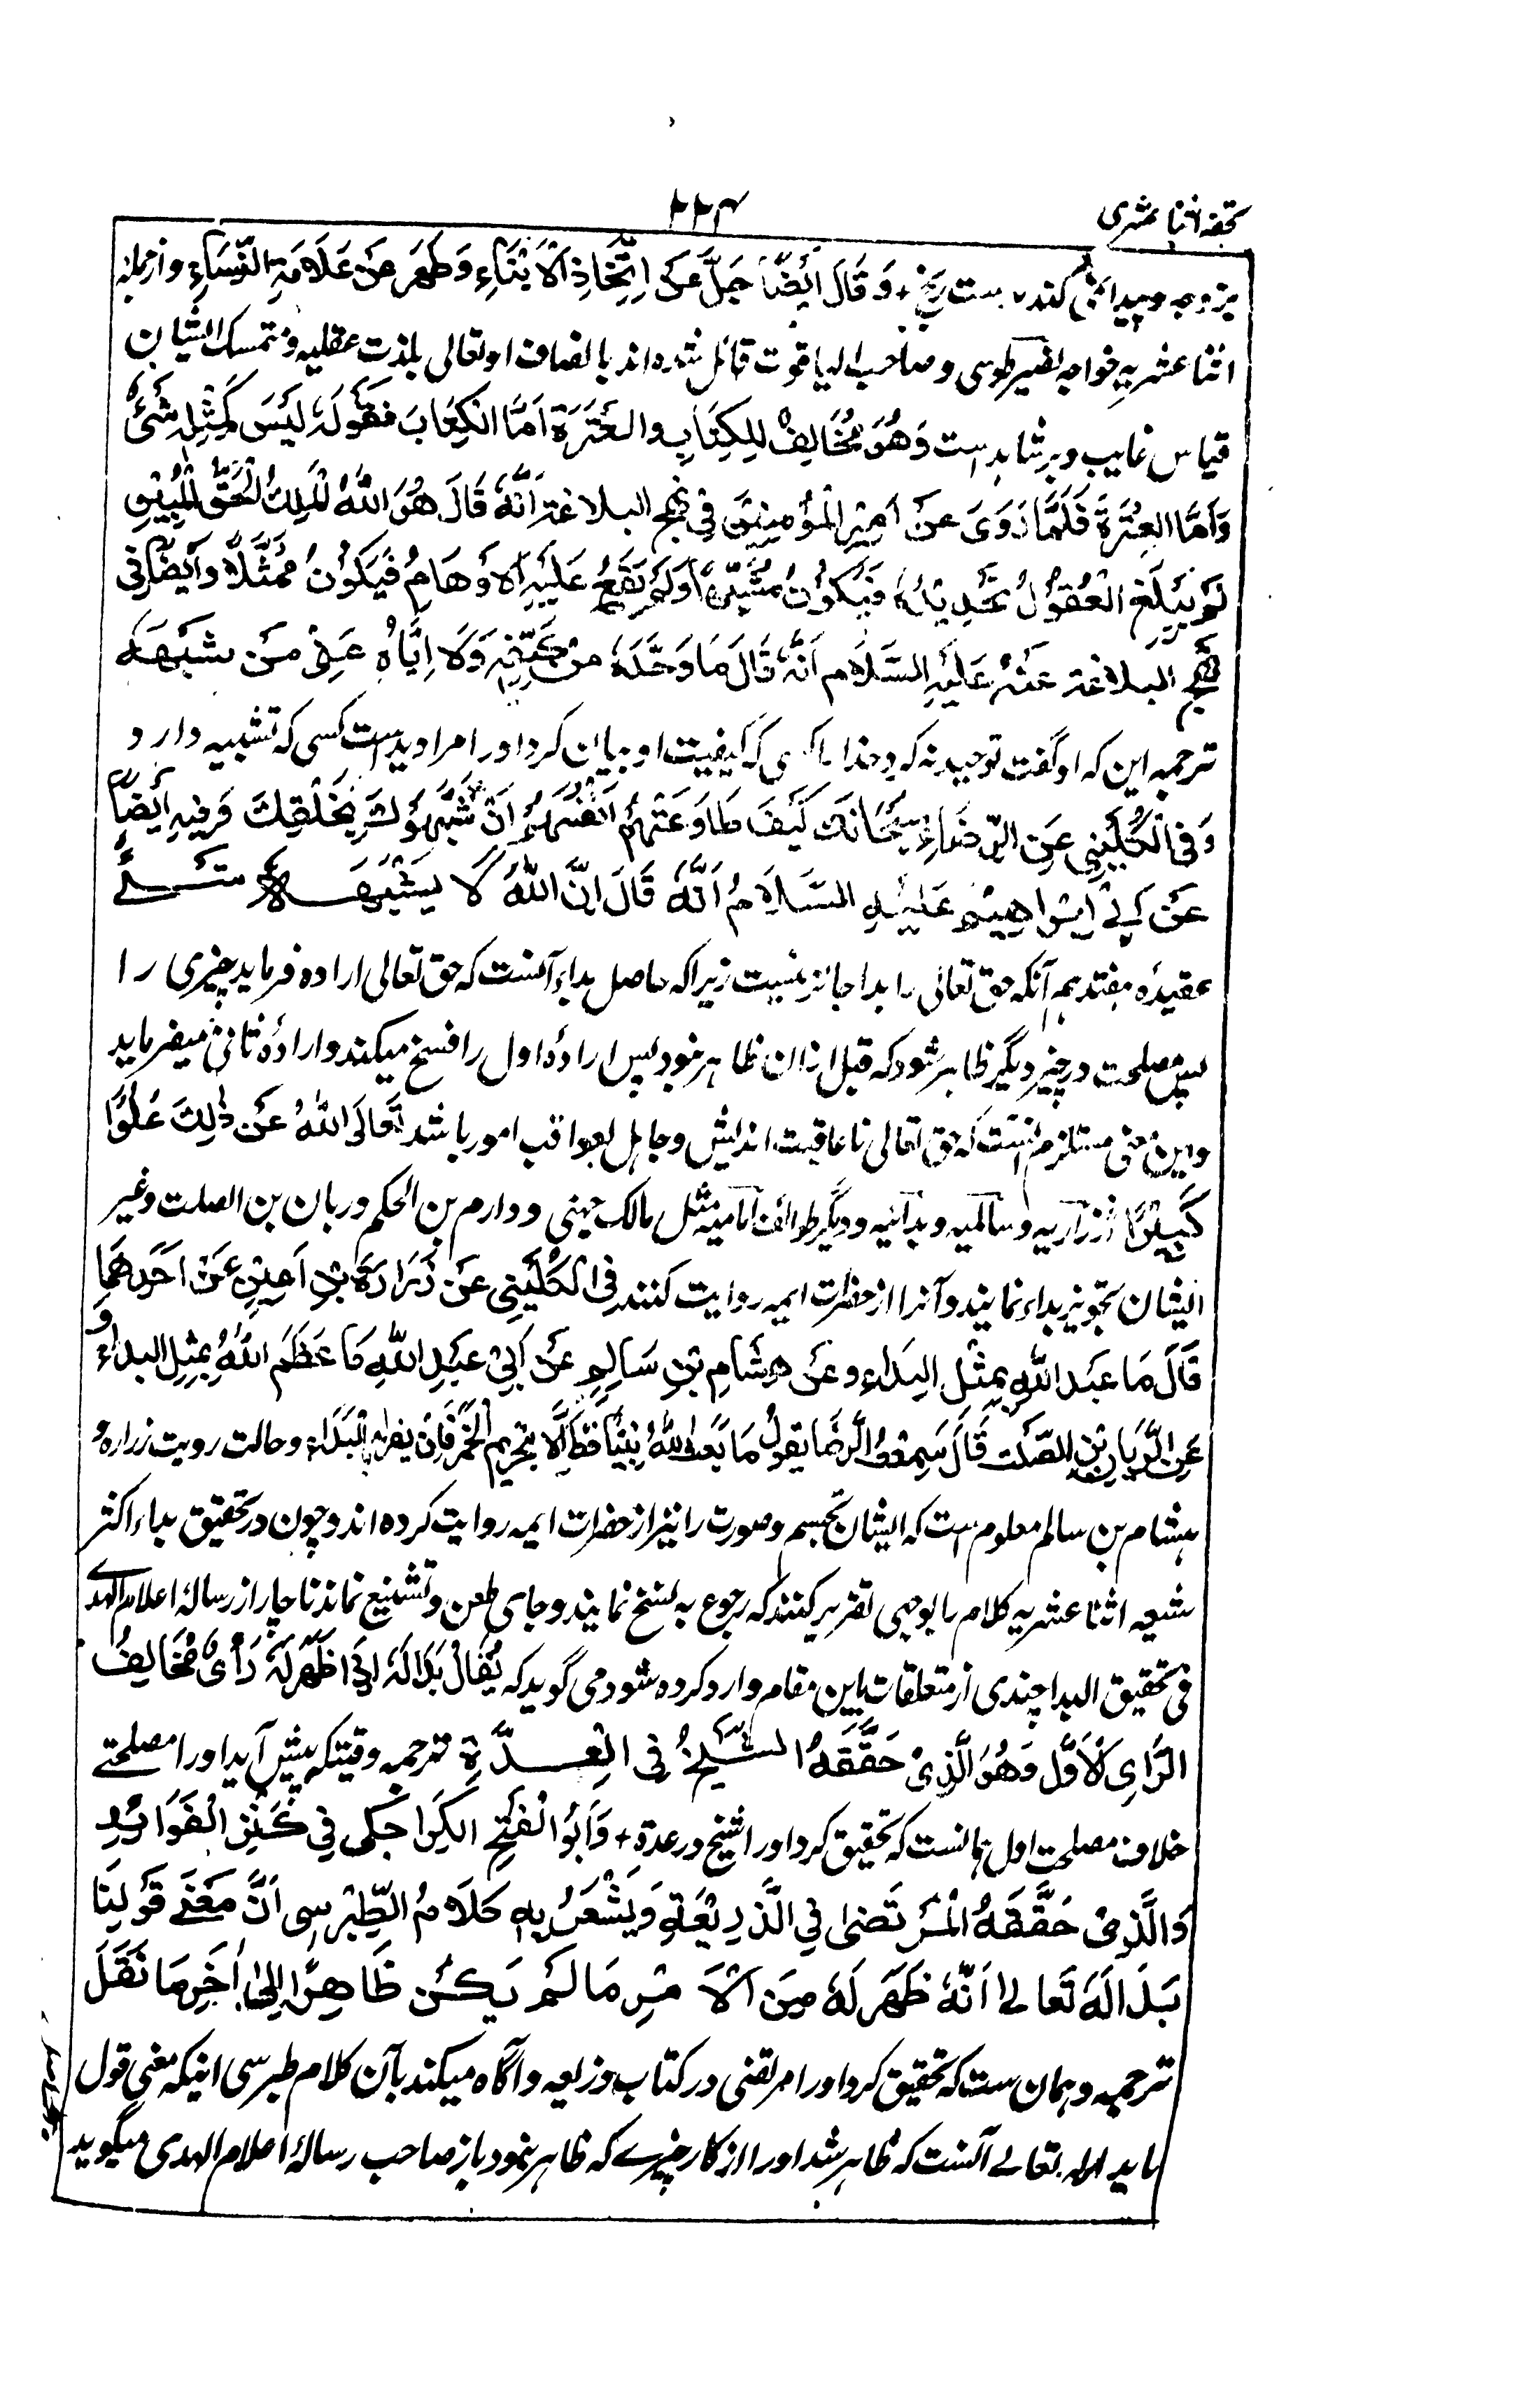 تحفه اثنا عشری
۲۲۴
وَقَالَ اَيْضًا جَلَّ عَنْ اِتِّخَاذِ الْاَبْنَاءِ وَطَهُرَ عَنْ مُلَامَسَةِ النِّسَاءِ و از جمله
اثنا عشریه خواجه نصیر طوسی و صاحب الیاقوت قائل شده اند باتصاف او تعالی بلذت عقلیه و متمسک ایشان
قیاس غایب بر شاهد است وَهُوَ مُخَالِفٌ لِلْكِتَابِ والعِتْرَةِ اَمَّا الْكِتَابُ فَقَوْلُهُ لَيْسَ كَمِثْلِهِ شَيْءٌ
وَاَمَّا العِتْرَةُ فَلِمَا رَوَى عَنْ اَمِيْرِ الْمُؤْمِنِيْنَ فِيْ نهج البلاغة اَنَّهُ قَالَ هُوَ اللهُ الْمَلِكُ الْحَقُّ الْمُبِيْنُ
لَمْ يَبْلُغِ العُقُوْلُ تَحْدِيْدَهُ فَيَكُوْنُ مُشَبَّهًا وَلَمْ تَقَعْ عَلَيْهِ الْاَوْهَامُ فَيَكُوْنُ مُمَثَّلًا وَاَيْضًا فِي
نهج البلاغة عَنْهُ عَلَيْهِ السَّلَام اَنَّهُ قَالَ مَا وَحَّدَهُ مَنْ كَيَّفَهُ وَلَا اِيَّاهُ عَنٰى مَنْ شَبَّهَهُ
ترجمه این که او گفت توحید نه کرد خدا را کسی که کیفیت او بیان کرد او را مراد نداشت کسی که تشبیه دارد
وَفِي الْكُلَيْنِي عَنِ الرِّضَاءِ سُبْحَانَكَ كَيْفَ طَاوَعَتْهُمْ اَنْفُسُهُمْ اَنْ شَبَّهُوْكَ بِخَلْقِكَ وَفِيْهِ اَيْضًا
عَنْ اَبِيْ اِبْرَاهِيْمَ عَلَيْهِ السَّلَامُ اَنَّهُ قَالَ اِنَّ اللهَ لَا يَشْبَهُهُ شَيْءٌ
عقیدهٔ هفتدهم آنکه حق تعالی را بدا جائز نیست زیرا که حاصل بداء آنست که حق تعالی اراده فرماید چیزی را
پس مصلحت در چیز دیگر ظاهر شود که قبل ازان ظاهر نبود پس ارادهٔ اول را فسخ میکند و ارادهٔ ثانی میفرماید
و این معنی مستلزم آنست که حق تعالی نا عاقبت اندیش و جاهل بعواقب امور باشد تَعَالَى اللهُ عَنْ ذٰلِكَ عُلُوًّا
كَبِيْرًا زراریه و سالمیه و بدائیه و دیگر طوائف امامیه مثل مالک جهنی و دارم بن الحکم و ربان بن الصلت و غیر
ایشان تجویز بداء نمایند و آنرا از حضرات ایمه روایت کنند فِي الْكُلَيْنِي عَنْ زُرَارَةَ بْنِ اَعْيَنَ عَنْ اَحَدِهِمَا
قَالَ مَا عُبِدَ اللهُ بِمِثْلِ البَدَاءِ و عَنْ هِشَامِ بْنِ سَالِمٍ عَنْ اَبِيْ عَبْدِ اللهِ مَا عُظِّمَ اللهُ بِمِثْلِ البداء و
عَنِ الرَّبَّانِ بْنِ الصَّلْتِ قَالَ سَمِعْتُ الرِّضَا يَقُوْلُ مَا بَعَثَ اللهُ نَبِيًّا قَطُّ اِلَّا بِتَحْرِيْمِ الْخَمْرِ وَاَنْ يقر له بِالْبَدَاءِ و حالت رویت زراره و
هشام بن سالم معلوم است که ایشان تجسم و صورت را نیز از حضرات ایمه روایت کرده اند و چون در تحقیق بداء اکثر
شیعه اثنا عشریه کلام را بوجهی تقریر کنند که رجوع به نسخ نمایند و جای طعن و تشنیع نماند ناچار از رسالهٔ اعلام الهدی
فی تحقیق البدا چندی از متعلقات این مقام وارد کرده شود می گوید که يُقَالُ بَدَا لَهُ اِذَا ظَهَرَ لَهُ رَأْيٌ مُخَالِفُ
الرَّاْيِ الْاَوَّلِ وَهُوَ الَّذِيْ حَقَّقَهُ الشَّيْخُ فِي الْعِدَّةِ ترجمه وقتیکه پیش آید او را مصلحتے
خلاف مصلحت اول همانست که تحقیق کرد او را شیخ در عدة + وَاَبُو الْفَتْحِ الْكَرَاجَكِي فِي كَنْزِ الْفَوَائِدِ
وَالَّذِيْ حَقَّقَهُ الْمُرْتَضٰى فِي الذَّرِيْعَةِ وَيَشْعَرُ بِهِ كَلَامُ الطَّبْرَسِي اَنَّ مَعْنٰى قَوْلِنَا
بَدَا لَهُ تَعَالٰى اَنَّهُ ظَهَرَ لَهُ مِنَ الْاَمْرِ مَا لَمْ يَكُنْ ظَاهِرًا اِلٰى اٰخِرِ مَا نَقَلَ
ترجمه و همان ست که تحقیق کرد او را مرتضی در کتاب ذریعه و آگاه میکند بآن کلام طبرسی اینکه معنی قول
ما بدا له تعالے آنست که ظاهر شد او را از کار چیزے که ظاهر نبود باز صاحب رسالهٔ اعلام الهدی میگوید